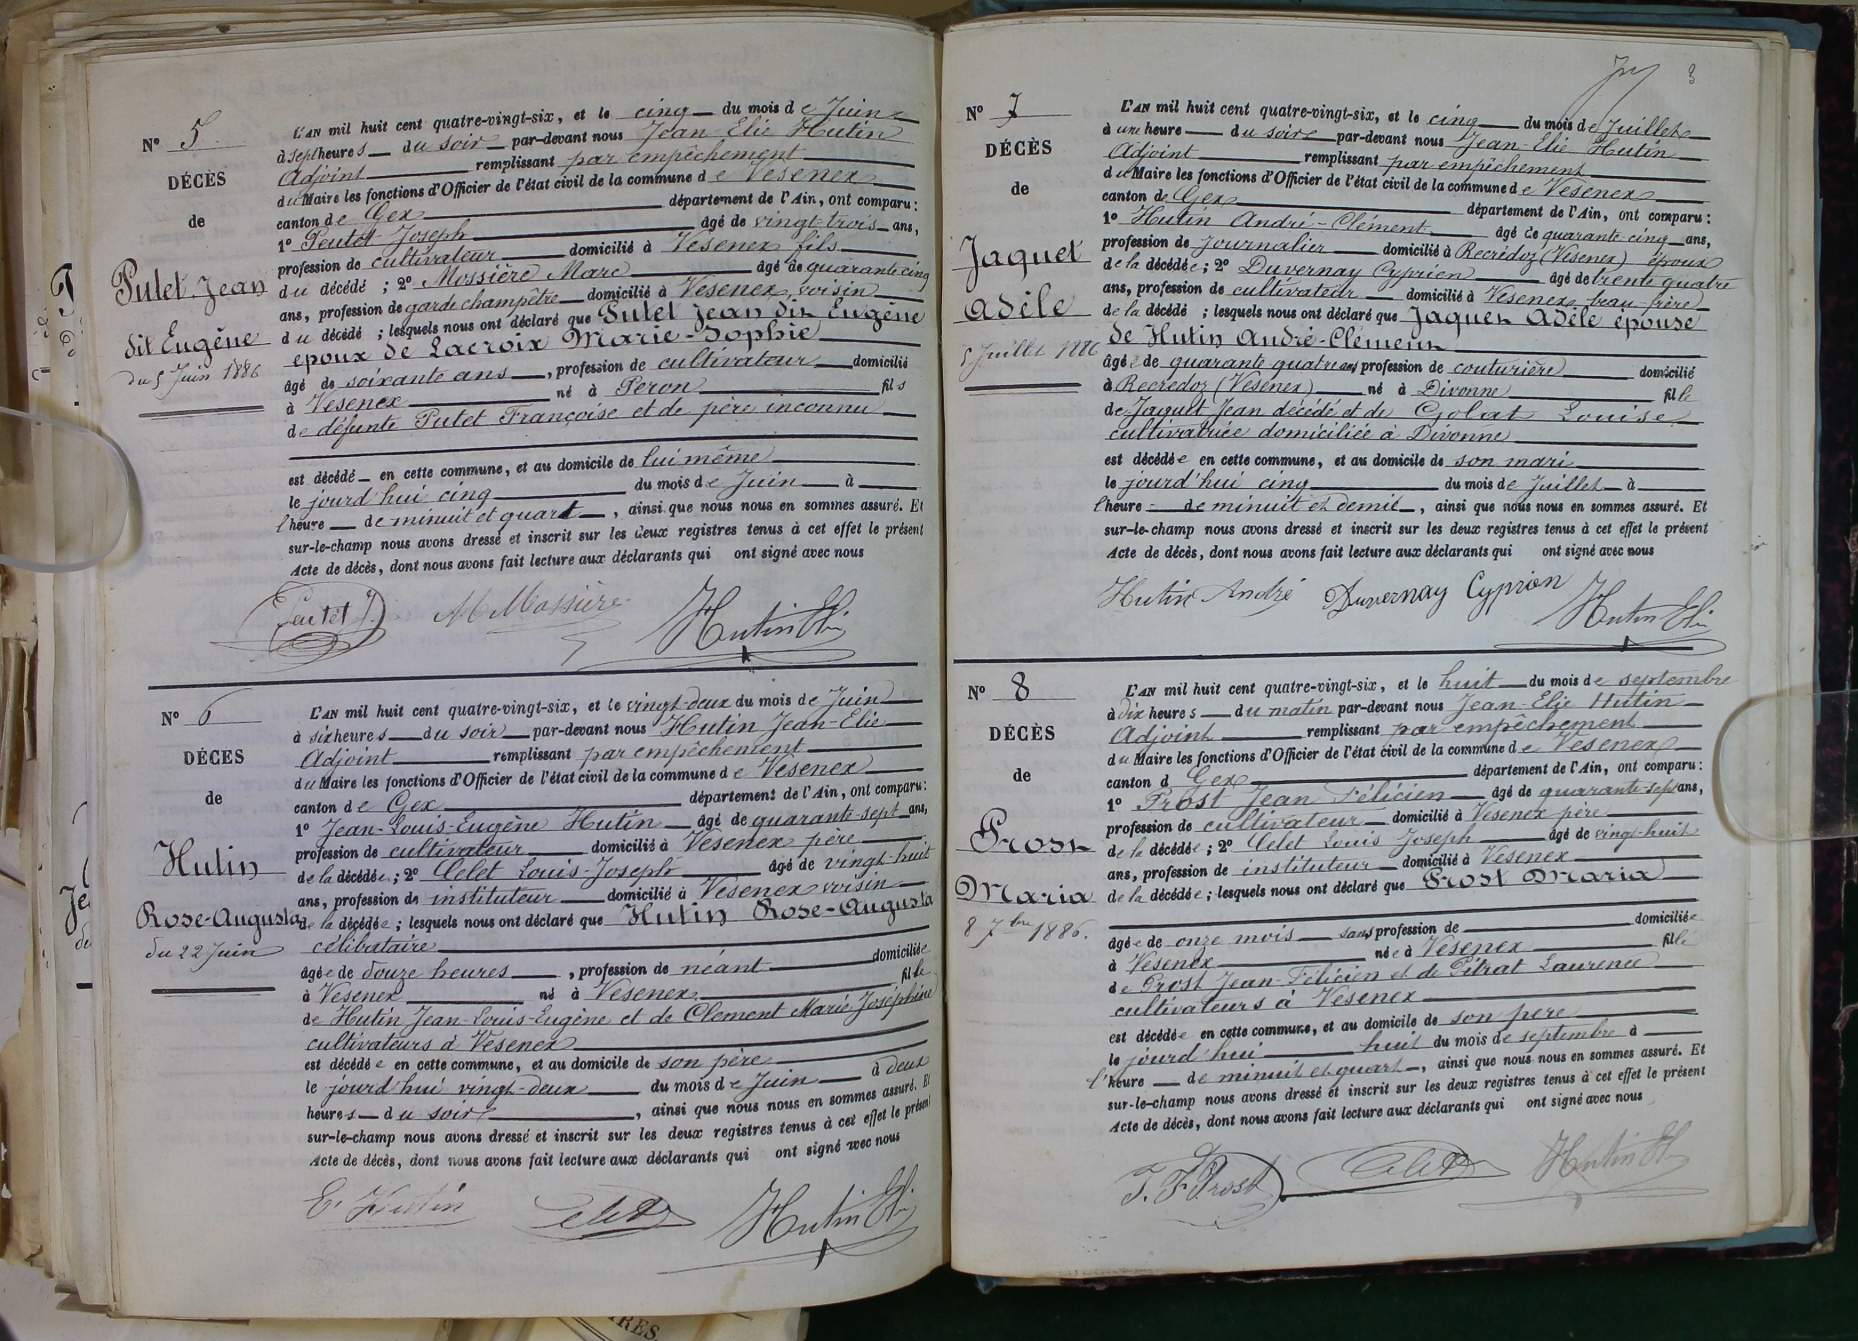 N° 5
DÉCÈS
de
Putet Jean
dit Eugène
du 5 Juin 1886
L'AN mil huit cent quatre-vingt-six, et le cinq du mois de Juin
à sept heures du soir par-devant nous Jean Elie Hutin
Adjoint remplissant par empêchement
du Maire les fonctions d'Officier de l'état civil de la commune de Vesenex
canton de Gex département de l'Ain, ont comparu :
1° Peutet Joseph âgé de vingt-trois ans,
profession de cultivateur domicilié à Vesenex fils
du décédé ; 2° Mossière Marc âgé de quarante cinq
ans, profession de garde champêtre domicilié à Vesenex, voisin
du décédé ; lesquels nous ont déclaré que Putet Jean dit Eugène
époux de Lacroix Marie-Sophie
âgé de soixante ans, profession de cultivateur domicilié
à Vesenex né à Peron fils
de défunte Putet Françoise et de père inconnu
est décédé en cette commune, et au domicile de lui même
le jourd'hui cinq du mois de Juin à
l'heure de minuit et quart, ainsi que nous nous en sommes assuré. Et
sur-le-champ nous avons dressé et inscrit sur les deux registres tenus à cet effet le présent
Acte de décès, dont nous avons fait lecture aux déclarants qui ont signé avec nous
Peutet J. M Mossière Hutin Eli
N° 6
DÉCES
de
Hutin
Rose-Augusta
du 22 Juin
L'AN mil huit cent quatre-vingt-six, et le vingt-deux du mois de Juin
à six heures du soir par-devant nous Hutin Jean-Elie
Adjoint remplissant par empêchement
du Maire les fonctions d'Officier de l'état civil de la commune de Vesenex
canton de Gex département de l'Ain, ont comparu :
1° Jean-Louis-Eugène Hutin âgé de quarante-sept ans,
profession de cultivateur domicilié à Vesenex père
de la décédée ; 2° Celet Louis-Joseph âgé de vingt-huit
ans, profession de instituteur domicilié à Vesenex voisin
de la décédée ; lesquels nous ont déclaré que Hutin Rose-Augusta
célibataire
âgée de douze heures, profession de néant domiciliée
à Vesenex né à Vesenex fille
de Hutin Jean-Louis-Eugène et de Clement Marie Joséphine
cultivateurs à Vesenex
est décédée en cette commune, et au domicile de son père
le jourd'hui vingt-deux du mois de Juin à deux
heures du soir, ainsi que nous nous en sommes assuré. Et
sur-le-champ nous avons dressé et inscrit sur les deux registres tenus à cet effet le présent
Acte de décès, dont nous avons fait lecture aux déclarants qui ont signé avec nous
E. Hutin Celet Hutin Eli
3
N° 7
DÉCÈS
de
Jaquet
Adèle
5 Juillet 1886
L'AN mil huit cent quatre-vingt-six, et le cinq du mois de Juillet
à une heure du soir par-devant nous Jean-Elie Hutin
Adjoint remplissant par empêchement
du Maire les fonctions d'Officier de l'état civil de la commune de Vesenex
canton de Gex département de l'Ain, ont comparu :
1° Hutin André-Clément âgé de quarante cinq ans,
profession de journalier domicilié à Recrédoz (Vesenex) époux
de la décédée ; 2° Duvernay Cyprien âgé de trente quatre
ans, profession de cultivateur domicilié à Vesenex, beau-frère
de la décédé ; lesquels nous ont déclaré que Jaquet Adèle épouse
de Hutin André-Clément
âgée de quarante quatre ans profession de couturière domicilié
à Recredoz (Vesenex) né à Divonne fille
de Jaquet Jean décédé et de Golat Louise
cultivatrice domiciliée à Divonne
est décédée en cette commune, et au domicile de son mari
le jourd'hui cinq du mois de Juillet à
l'heure de minuit et demie, ainsi que nous nous en sommes assuré. Et
sur-le-champ nous avons dressé et inscrit sur les deux registres tenus à cet effet le présent
Acte de décès, dont nous avons fait lecture aux déclarants qui ont signé avec nous
Hutin André Duvernay Cyprien Hutin Eli
N° 8
DÉCÈS
de
Prost
Maria
8 7bre 1886.
L'AN mil huit cent quatre-vingt-six, et le huit du mois de septembre
à dix heures du matin par-devant nous Jean-Elie Hutin
Adjoint remplissant par empêchement
du Maire les fonctions d'Officier de l'état civil de la commune de Vesenex
canton d Gex département de l'Ain, ont comparu :
1° Prost Jean Félicien âgé de quarante-sept ans,
profession de cultivateur domicilié à Vesenex père
de la décédée ; 2° Celet Louis Joseph âgé de vingt-huit
ans, profession de instituteur domicilié à Vesenex
de la décédée ; lesquels nous ont déclaré que Prost Maria
âgée de onze mois sans profession de domiciliée
à Vesenex née à Vesenex fille
de Prost Jean-Félicien et de Pétrat Laurence
cultivateurs à Vesenex
est décédée en cette commune, et au domicile de son père
le jourd'hui huit du mois de septembre à
l'heure de minuit et quart, ainsi que nous nous en sommes assuré. Et
sur-le-champ nous avons dressé et inscrit sur les deux registres tenus à cet effet le présent
Acte de décès, dont nous avons fait lecture aux déclarants qui ont signé avec nous
J. F. Prost Celet Hutin Eli